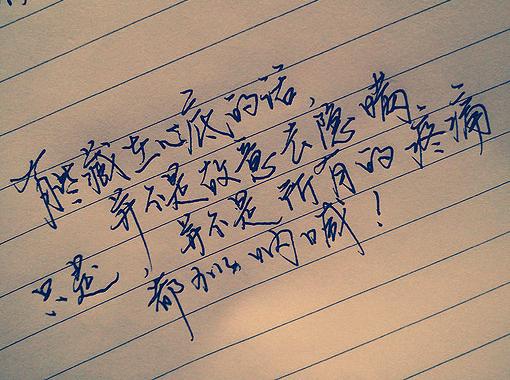 有些藏在心底的话,
并不是故意去隐瞒
只是，并不是所有的疼痛
都可以呐喊！